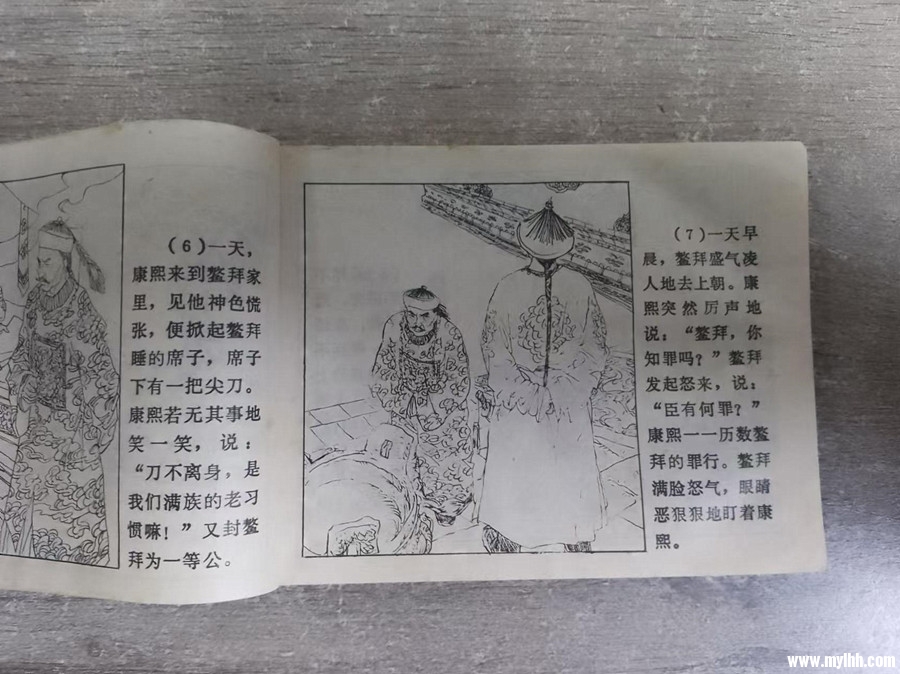 (6)一天，
康熙来到鳌拜家
里，见他神色慌
张，便掀起鳌拜
睡的席子，席子
下有一把尖刀。
康熙若无其事地
笑一笑，说：
“刀不离身，是
我们满族的老习
惯嘛！”又封鳌
拜为一等公。
(7)一天早
晨，鳌拜盛气凌
人地去上朝。康
熙突然厉声地
说：“鳌拜，你
知罪吗？”鳌拜
发起怒来，说：
“臣有何罪？”
康熙一一历数鳌
拜的罪行。鳌拜
满脸怒气，眼睛
恶狠狠地盯着康
熙。
www.mylhh.com